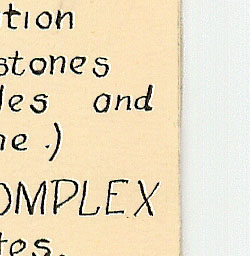 tion
stones
les and
ne.)
OMPLEX
tes.